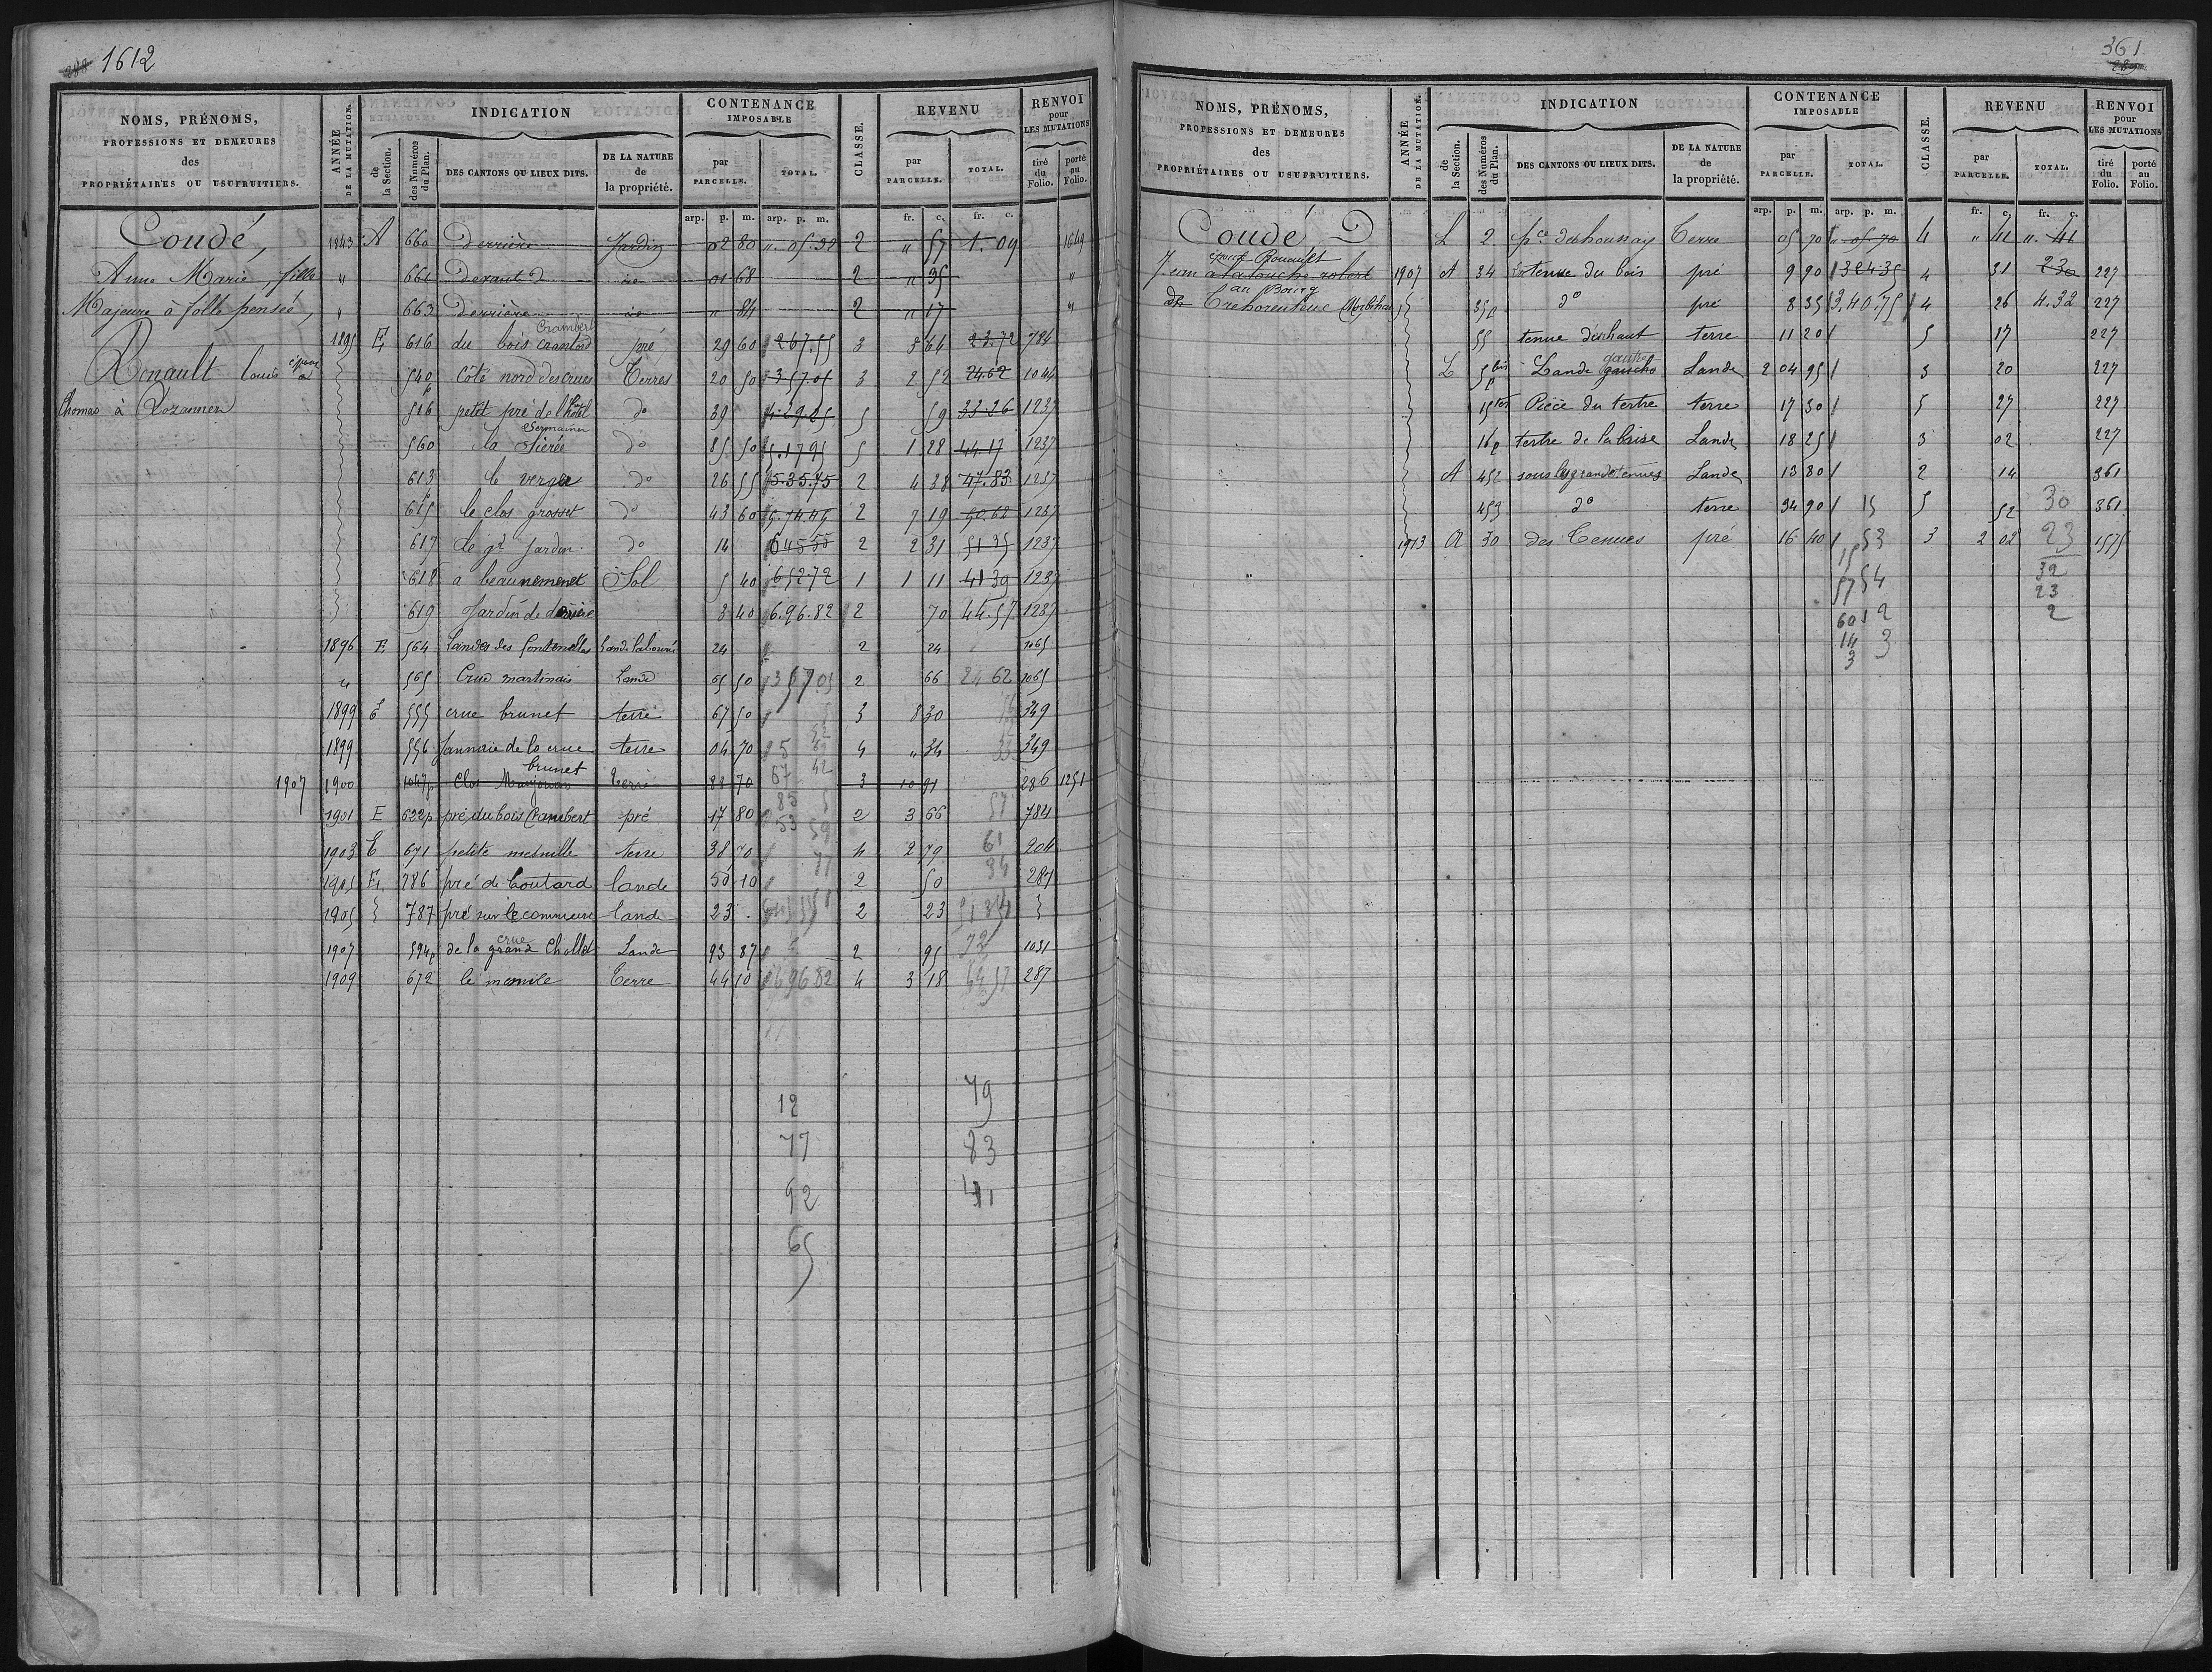 1612
NOMS, PRÉNOMS,
PROFESSIONS ET DEMEURES
des
PROPRIÉTAIRES OU USUFRUITIERS.
ANNÉE DE LA MUTATION.
INDICATION
de la Section.
des Numéros du Plan.
DES CANTONS OU LIEUX DITS.
DE LA NATURE de la propriété.
CONTENANCE IMPOSABLE
par PARCELLE.
TOTAL.
CLASSE.
REVENU
par PARCELLE.
TOTAL.
RENVOI pour LES MUTATIONS
tiré du Folio.
porté au Folio.
arp. p. m. arp. p. m. fr. c. fr. c.
Coudé, 1843 A 660 Derrière Jardin 02 80 " 05.32 2 " 57 1.09 1649
Anne Marie, fille " 661 01 68 2 " 35 "
Majeure à folle pensée, " 663 Derrière " 84 2 " 17 "
Crambert
1895 E 616 du bois pré 29 60 2 67.55 3 8 64 23.72 784
Renault Louis époux 540 p côté nord des crues Terres 20 50 3 57.05 3 2 52 24.62 1044
Thomas à 516 petit pré de l'hôtel do 39 5 59 33.36 1237
560 la do 85 50 5.1795 5 1 28 44.17 1237
613 le do 26 55 5.35.75 2 4 38 47.83 1237
615 le clos grosset do 43 60 2 7 19 50.62 1237
617 Le gd Jardin do 14 64555 2 2 31 51 35 1237
618 a Sol 5 40 652.72 1 1 11 41 39 1237
619 Jardin de derrière 3 40 6.96.82 2 70 44.57 1237
1896 E 564 Landes des fontenelles Lande labourée 24 2 24 1065
" 565 Crue martinais Lande 65 50 357 05 2 66 24 62 1065
1899 E 555 crue brunet terre 67 50 3 8 30 349
1899 556 Jannaie de la crue terre 04 70 4 " 34 349
brunet
1907 1900 1047p Clos Terre 88 70 3 10 91 286 1251
1901 E 622p pré du bois Crambert pré 17 80 2 3 66 57 784
1903 E 671 petite mesnille terre 38 70 4 2 79 61 204
1905 E 786 pré de Coutard lande 50 10 2 50 34 287
1905 787 pré sur le lande 23 2 23
crue
1907 594p de la grand Chollet Lande 93 87 2 95 72 1031
1909 672 le mesnile Terre 44 10 69682 4 3 18 44 57 287
12 79
77 83
92 41
65
361
NOMS, PRÉNOMS,
PROFESSIONS ET DEMEURES
des
PROPRIÉTAIRES OU USUFRUITIERS.
ANNÉE DE LA MUTATION.
INDICATION
de la Section.
des Numéros du Plan.
DES CANTONS OU LIEUX DITS.
DE LA NATURE de la propriété.
CONTENANCE IMPOSABLE
par PARCELLE.
TOTAL.
CLASSE.
REVENU
par PARCELLE.
TOTAL.
RENVOI pour LES MUTATIONS
tiré du Folio.
porté au Folio.
arp. p. m. arp. p. m. fr. c. fr. c.
Coudé L 2 pce deshoussay Terre 05 70 " 05 70 4 " 41 " 41
époux Rouault
Jean à la touche robert 1907 A 34 la tenue du bois pré 9 90 32435 4 31 2 30 227
au Bourg
de Trehorenteuc Morbihan 35p do pré 8 35 3,40.75 4 26 4.32 227
55 tenue d'enhaut terre 11 20 5 17 227
gautro
L 5 bis p Lande gaucho Lande 2 04 95 3 20 227
15 ter Pièce du tertre terre 17 30 5 27 227
16p tertre de la brise Lande 18 25 3 02 227
A 452 sous les grandes tenues Lande 13 80 2 14 361
453 do terre 34 90 15 5 52 30 361
1913 A 30 des Tenues pré 16 40 53 3 2 02 23 1575
15 32
57 54 23
60 12 2
14 3
3